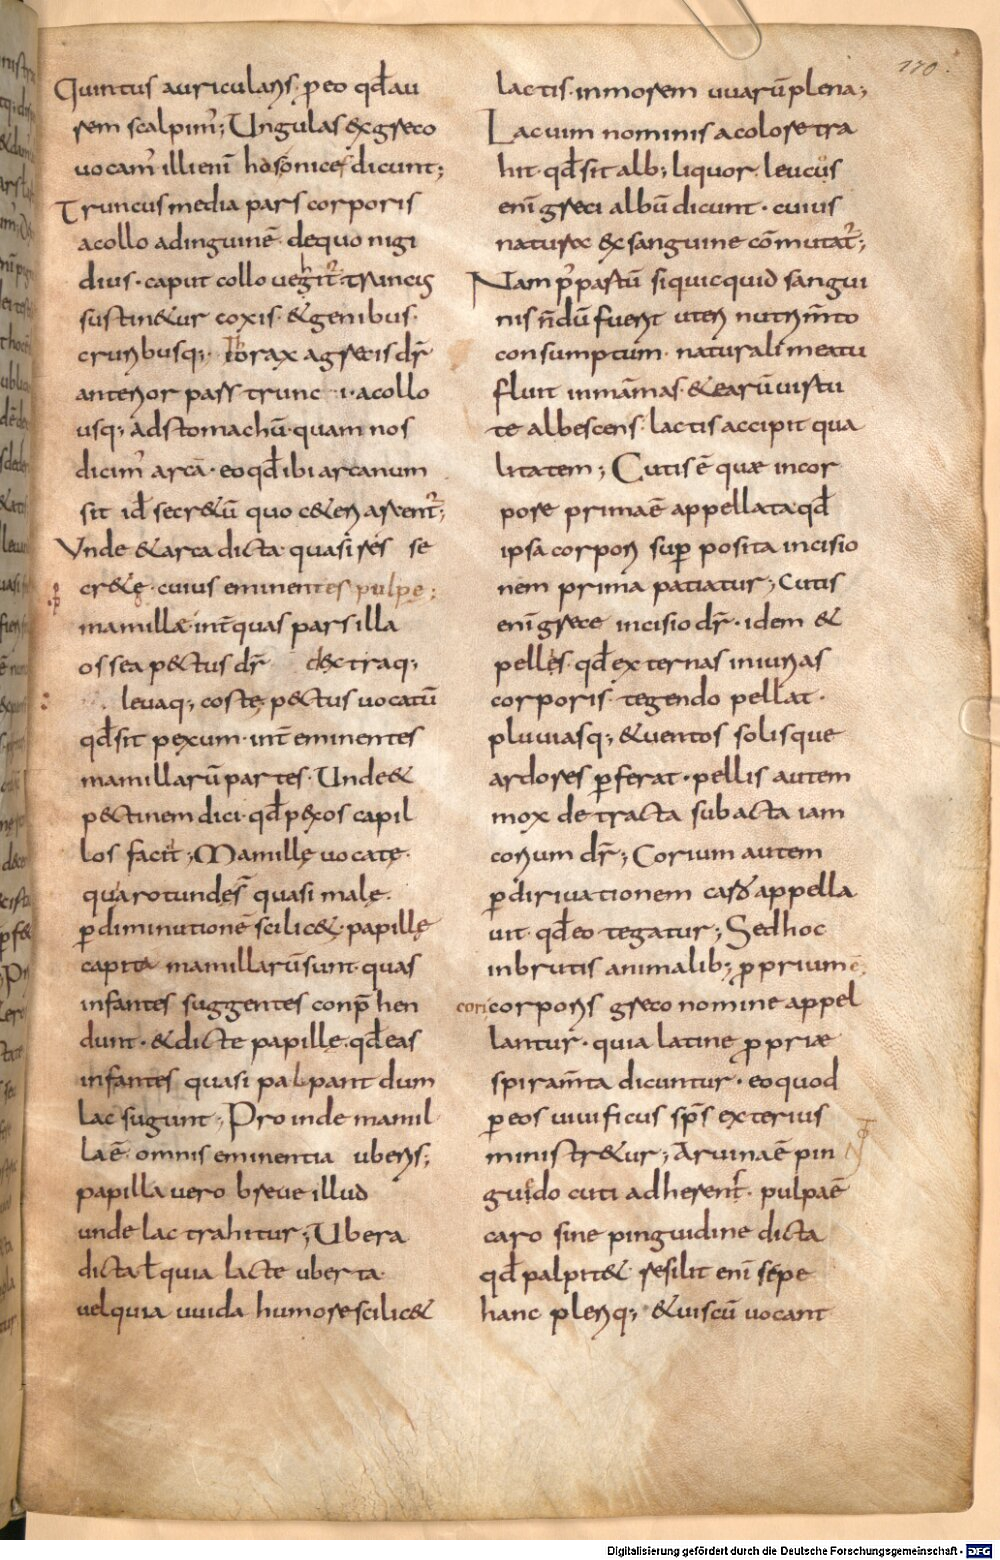 Quintus auricularis. p eo qđ au
rem scalpim̄; Ungulas ex greco
vocam̄ illi enī has onices dicunt;
Truncus media pars corporis
a collo ad inguinē. de quo nigi
dius. caput collo vehit̄. truncus
sustin&ur coxis. & genibus.
cruribusq; Thorax a grecis dr̄
anterior pars trunci. a collo
usq; ad stomachū. quam nos
dicim̄ arcā. eo qđ ibi arcanum
sit id secr&ū quo c&eri arcent̄;
Vnde & arca dicta quasi res se
cr&ę. cuius eminentes pulpe;
mamillæ. int̄ quas pars illa
ossea p&tus dr̄ dextraq;
levaq; costę. p&tus vocatū
qđ sit pexum. int̄ eminentes
mamillarū partes. Unde &
p&tinem dici. qđ pexos capil
los facit; Mamillę vocatę.
quia rotundę s̄ quasi malę.
p diminutionē scilic&. papillę
capita mamillarū sunt. quas
infantes suggentes conp̄hen
dunt. & dictę papillę. qđ eas
infantes quasi palpant dum
lac sugunt; Proinde mamil
la ē. omnis eminentia uberis;
papilla vero breve illud
unde lac trahitur; Ubera
dicta ł quia lacte uberta
vel quia uvida humore scilic&
lactis. in morem uvarū plena;
Lac vim nominis a colore tra
hit. qđ sit alb; liquor. leucos
enī greci albū dicunt. cuius
naturæ ex sanguine cōmutat̄;
Nam p̄ pastū si quicquid sangui
nis ñdū fuerit uteri nutrim̄to
consumptum. naturali meatu
fluit in māmas. & earū virtu
te albescens. lactis accipit qua
litatem; Cutis ē quæ in cor
pore prima ē appellata qđ
ipsa corpori sup posita incisio
nem prima patiatur; Cutis
enī grece incisio dr̄. idem &
pelles. qđ externas iniurias
corporis. tegendo pellat.
pluviasq; & ventos solisque
ardores pferat. pellis autem
mox detracta subacta iam
corium dr̄; Corium autem
p dirivationem caro appella
vit. qđ eo tegatur; Sed hoc
in brutis animalib; pprium ē;
corporis greco nomine appel
lantur. quia latine ppriæ
spiram̄ta dicuntur. eo quod
p eos vivificus sp̄s exterius
ministr&ur; Arvina ē pin
guido cuti adherens. pulpa ē
caro sine pinguidine dicta
qđ palpit&. resilit enī sępe
hanc pleriq; & viscū vocant
170.
Digitalisierung gefördert durch die Deutsche Forschungsgemeinschaft - DFG